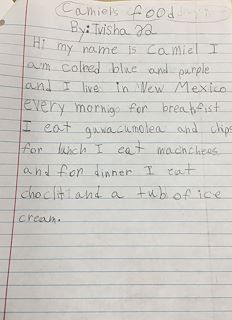 Camiels food
By: Tvisha J2
Hi my name is Camiel I
am colred blue and purple
and I live in New Mexico
every mornig for breahfist
I eat guwacumolea and chips
for lunch I eat macnchees
and for dinner I eat
choclit and a tub of ice
cream.